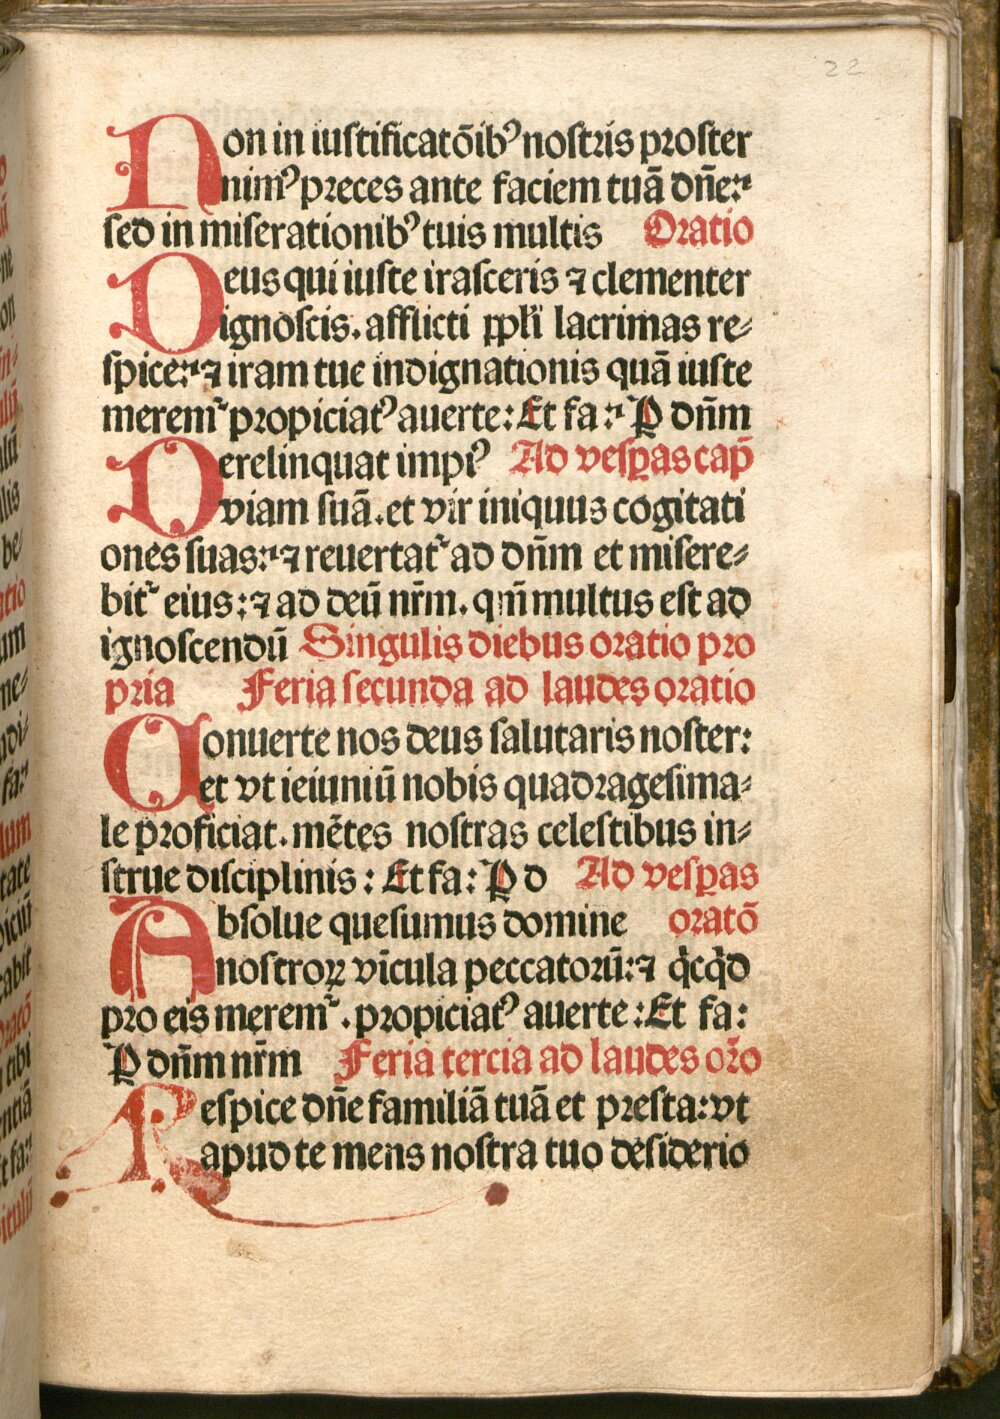 22
Non in iustificatōibꝰ nostris proster
nimꝰ preces ante faciem tuā dn̄e:
sed in miserationibꝰ tuis multis Oratio
Deus qui iuste irasceris ⁊ clementer
ignoscis. afflicti ppl̄i lacrimas re⸗
spice: ⁊ iram tue indignationis quā iuste
meremr̃ propiciatꝰ auerte: Et fa: P dn̄m
Derelinquat impiꝰ Ad vesꝑas cap̄
viam suā. et vir iniquus cogitati
ones suas: ⁊ reuertatr̃ ad dn̄m et misere⸗
bitr̃ eius: ⁊ ad deū nr̄m. qm̄ multus est ad
ignoscendū Singulis diebus oratio pro
pria Feria secunda ad laudes oratio
Conuerte nos deus salutaris noster:
et vt ieiuniū nobis quadragesima⸗
le proficiat. mētes nostras celestibus in⸗
strue disciplinis: Et fa: P d Ad vesꝑas
Absolue quesumus domine oratō
nostroꝝ vīcula peccatorū: ⁊ qͥcqͥd
pro eis meremr̃. propiciatꝰ auerte: Et fa:
P dn̄m nr̄m Feria tercia ad laudes or̄o
Respice dn̄e familiā tuā et presta: vt
apud te mens nostra tuo desiderio